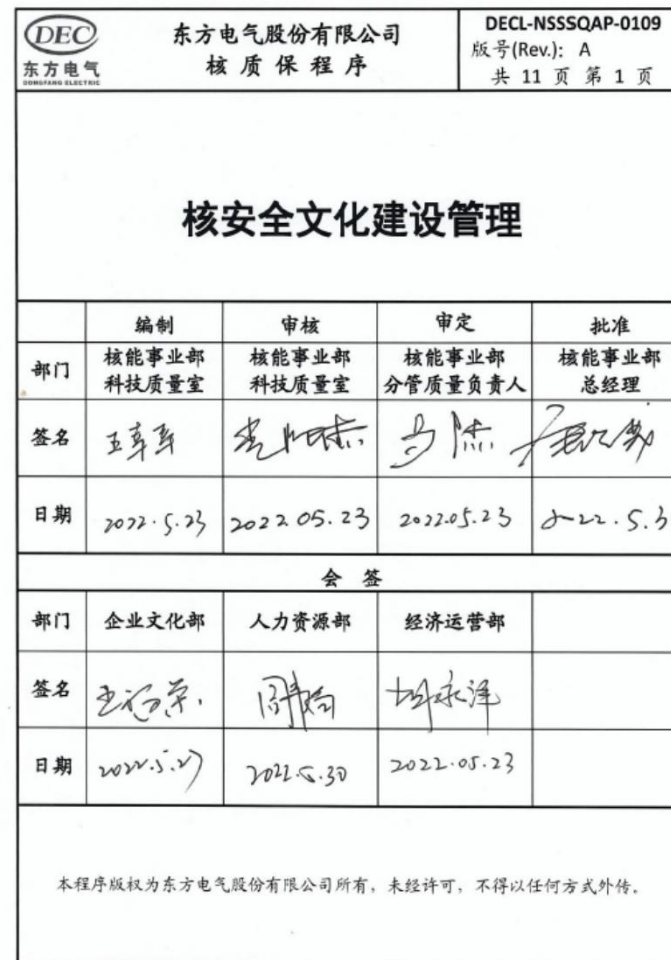 DEC
东方电气
DONGFANG ELECTRIC
东方电气股份有限公司
核质保程序
DECL-NSSSQAP-0109
版号(Rev.): A
共 11 页 第 1 页
核安全文化建设管理
编制 审核 审定 批准
部门 核能事业部科技质量室 核能事业部科技质量室 核能事业部分管质量负责人 核能事业部总经理
签名
日期 2022.5.23 2022.05.23 2022.05.23
会签
部门 企业文化部 人力资源部 经济运营部
签名
日期 2022.5.27 2022.5.30 2022.05.23
本程序版权为东方电气股份有限公司所有，未经许可，不得以任何方式外传。